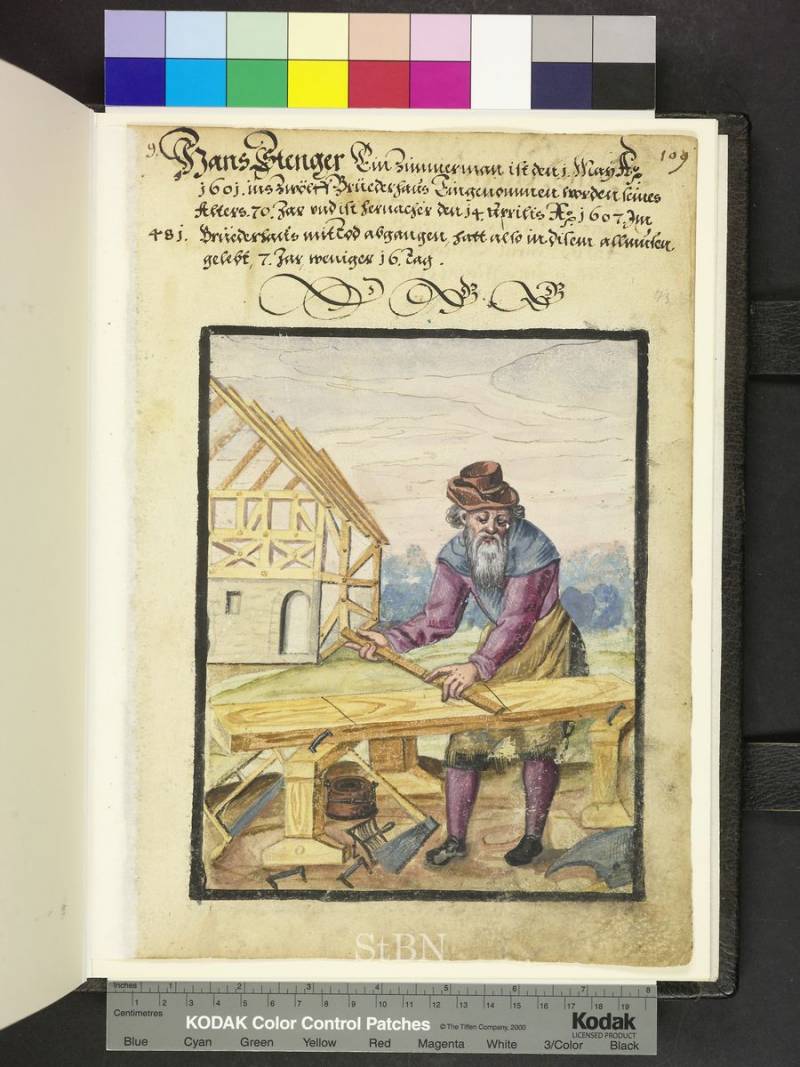 9. Hans Stenger Ein Zimmerman ist den 1. May Aº
109
1601. ins zwölff Brüederhaus Eingenommen worden seines
Alters. 70. Jar vnd ist hernacher den 14 Aprilis Aº 1607. Im
481. Brüederhaus mit tod abgangen, hatt also in disem allmusen
gelebt, 7. Jar, weniger 16. Tag.
StBN
Inches 1 2 3 4 5 6 7 8
Centimetres 1 2 3 4 5 6 7 8 9 10 11 12 13 14 15 16 17 18 19
KODAK Color Control Patches © The Tiffen Company, 2000 Kodak
LICENSED PRODUCT
Blue Cyan Green Yellow Red Magenta White 3/Color Black